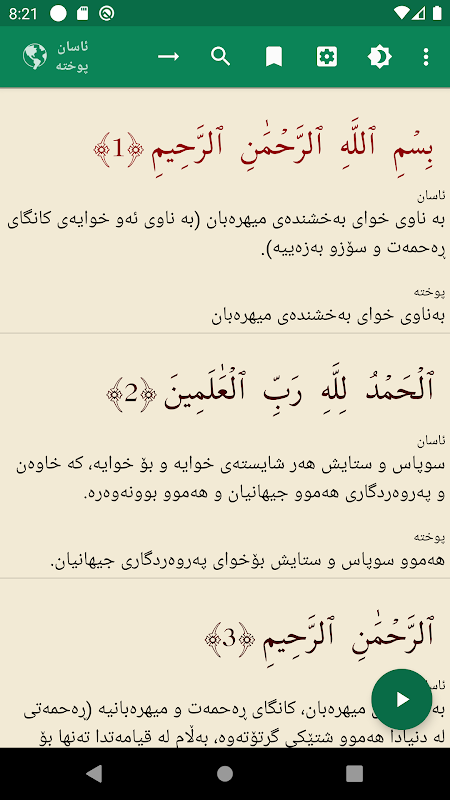 8:21
ئاسان
پوختە
بِسْمِ ٱللَّهِ ٱلرَّحْمَٰنِ ٱلرَّحِيمِ ﴿1﴾
ئاسان
بە ناوی خوای بەخشندەی میهرەبان (بە ناوی ئەو خوایەی کانگای
ڕەحمەت و سۆزو بەزەییە).
پوختە
بەناوی خوای بەخشندەی میهرەبان
ٱلْحَمْدُ لِلَّهِ رَبِّ ٱلْعَٰلَمِينَ ﴿2﴾
ئاسان
سوپاس و ستایش هەر شایستەی خوایە و بۆ خوایە، کە خاوەن
و پەروەردگاری هەموو جیهانیان و هەموو بوونەوەرە.
پوختە
هەموو سوپاس و ستایش بۆخوای پەروەردگاری جیهانیان.
ٱلرَّحْمَٰنِ ٱلرَّحِيمِ ﴿3﴾
میهرەبان، کانگای ڕەحمەت و میهرەبانیە (ڕەحمەتی
لە دنیادا هەموو شتێکی گرتۆتەوە، بەڵام لە قیامەتدا تەنها بۆ